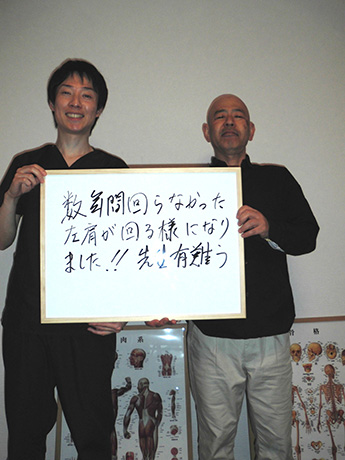 数年間回らなかった
左肩が回る様になり
ました!! 先生有難う
肉系
骨格